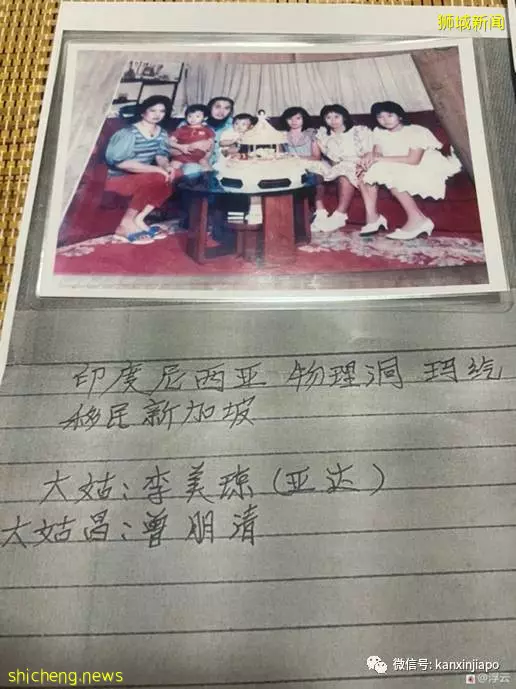 狮城新闻
印度尼西亚 物理洞 玛纥
移民新加坡
大姑:李美琼(亚达)
大姑昌:曾朋清
微信号: kanxinjiapo
shicheng.news
@浮云